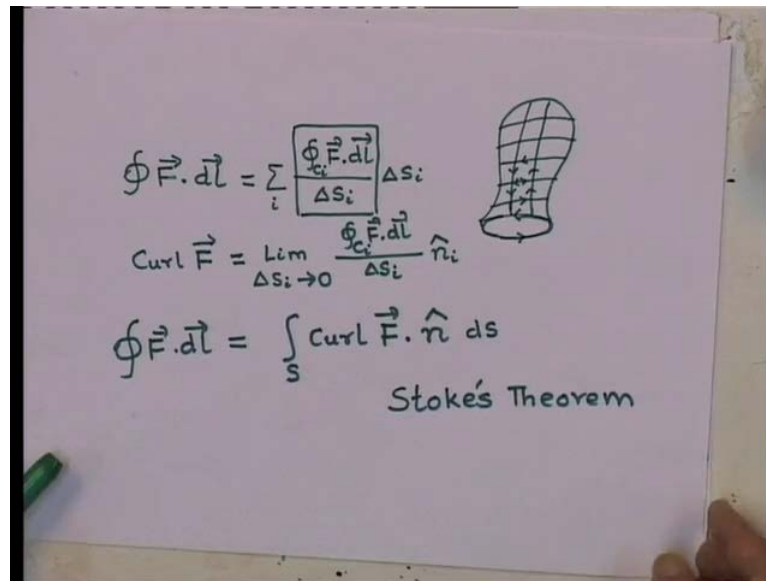 ∮ F⃗ . dl⃗ = Σ_i [∮_{ci} F⃗ . dl⃗ / ΔSi] ΔSi
Curl F⃗ = Lim_{ΔSi→0} ∮_{ci} F⃗ . dl⃗ / ΔSi n̂i
∮ F⃗ . dl⃗ = ∫_S Curl F⃗ . n̂ ds
Stoke's Theorem